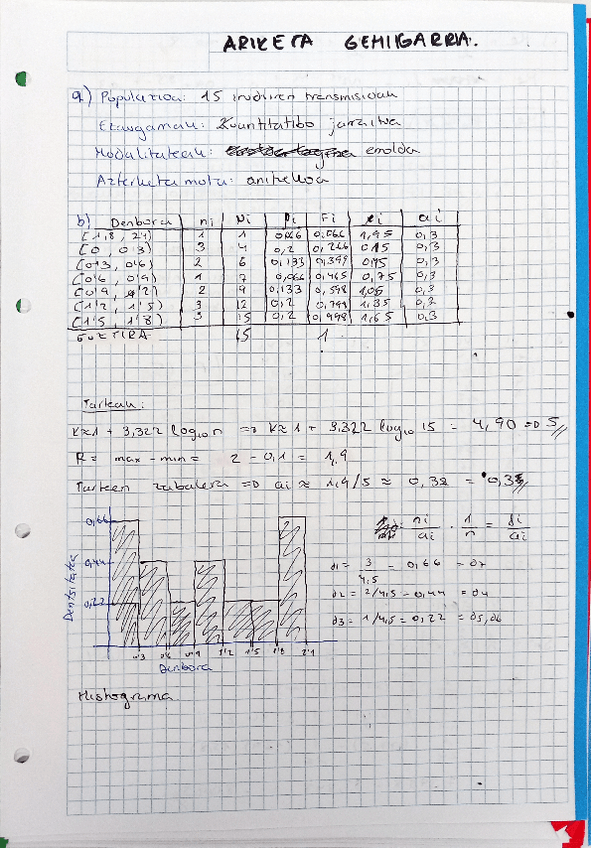 ARIKETA GEHIGARRIA.
a) Populazioa: 15 irudiren transmisioak
Ezaugarriak: Kuantitatibo jarraitua
Modalitateak:
Azterketa mota:
b) Denbora ni Ni Fi xi ai
[1,8, 2,1) 1 1 0,066 0,066 1,95 0,3
[0, 0'3) 3 4 0,2 0,266 0,15 0,3
[0'3, 0'6) 2 6 0,133 0,399 0,45 0,3
[0'6, 0'9) 1 7 0,066 0,465 0,75 0,3
[0'9, 1'2) 2 9 0,133 0,598 1,05 0,3
[1'2, 1'5) 3 12 0,2 0,798 1,35 0,3
[1'5, 1'8) 3 15 0,2 0,998 1,65 0,3
GUZTIRA 15 1
Tarteak:
K≈1 + 3,322 log₁₀ n => K≈ 1 + 3,322 log₁₀ 15 = 4,90 => 5
R = max - min = 2 - 0,1 = 1,9
Tarteen zabalera => ai ≈ 1,9/5 ≈ 0,38 =
ni/ai · 1/n = fi/ai
d1 = 3/4,5 = 0,66 = d7
d2 = 2/4,5 = 0,44 = d4
d3 = 1/4,5 = 0,22 = d5, d6
Dentsitatea
0,66
0,44
0,22
0'3 0'6 0'9 1'2 1'5 1'8 2'1
Denbora
Histograma